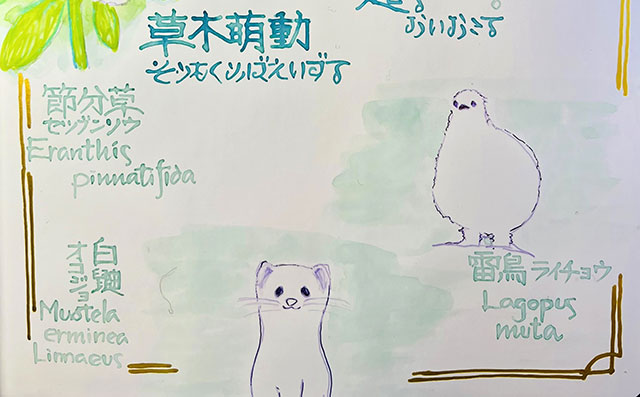 草木萌動
そうもくめばえいずる
節分草
セツブンソウ
Eranthis
pinnatifida
白鼬
オコジョ
Mustela
erminea
Linnaeus
雷鳥 ライチョウ
Lagopus
muta